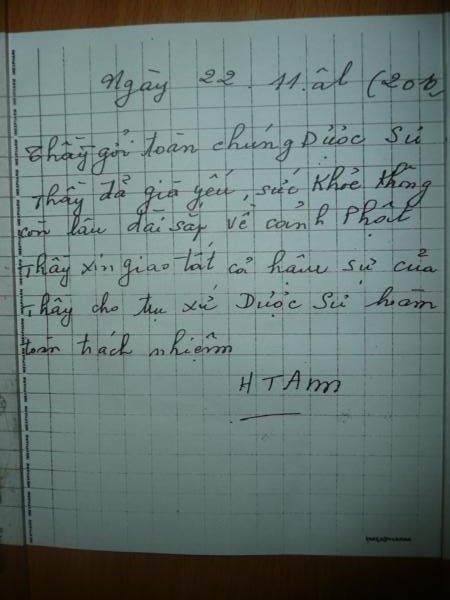 Ngày 22.11.âl (20
Thầy gởi toàn chúng Dược Sư
Thầy đã già yếu, sức khỏe không
còn lâu dài sắp về cảnh Phật
Thầy xin giao tất cả hậu sự của
Thầy cho trụ xứ Dược Sư hoàn
toàn trách nhiệm
HTAm